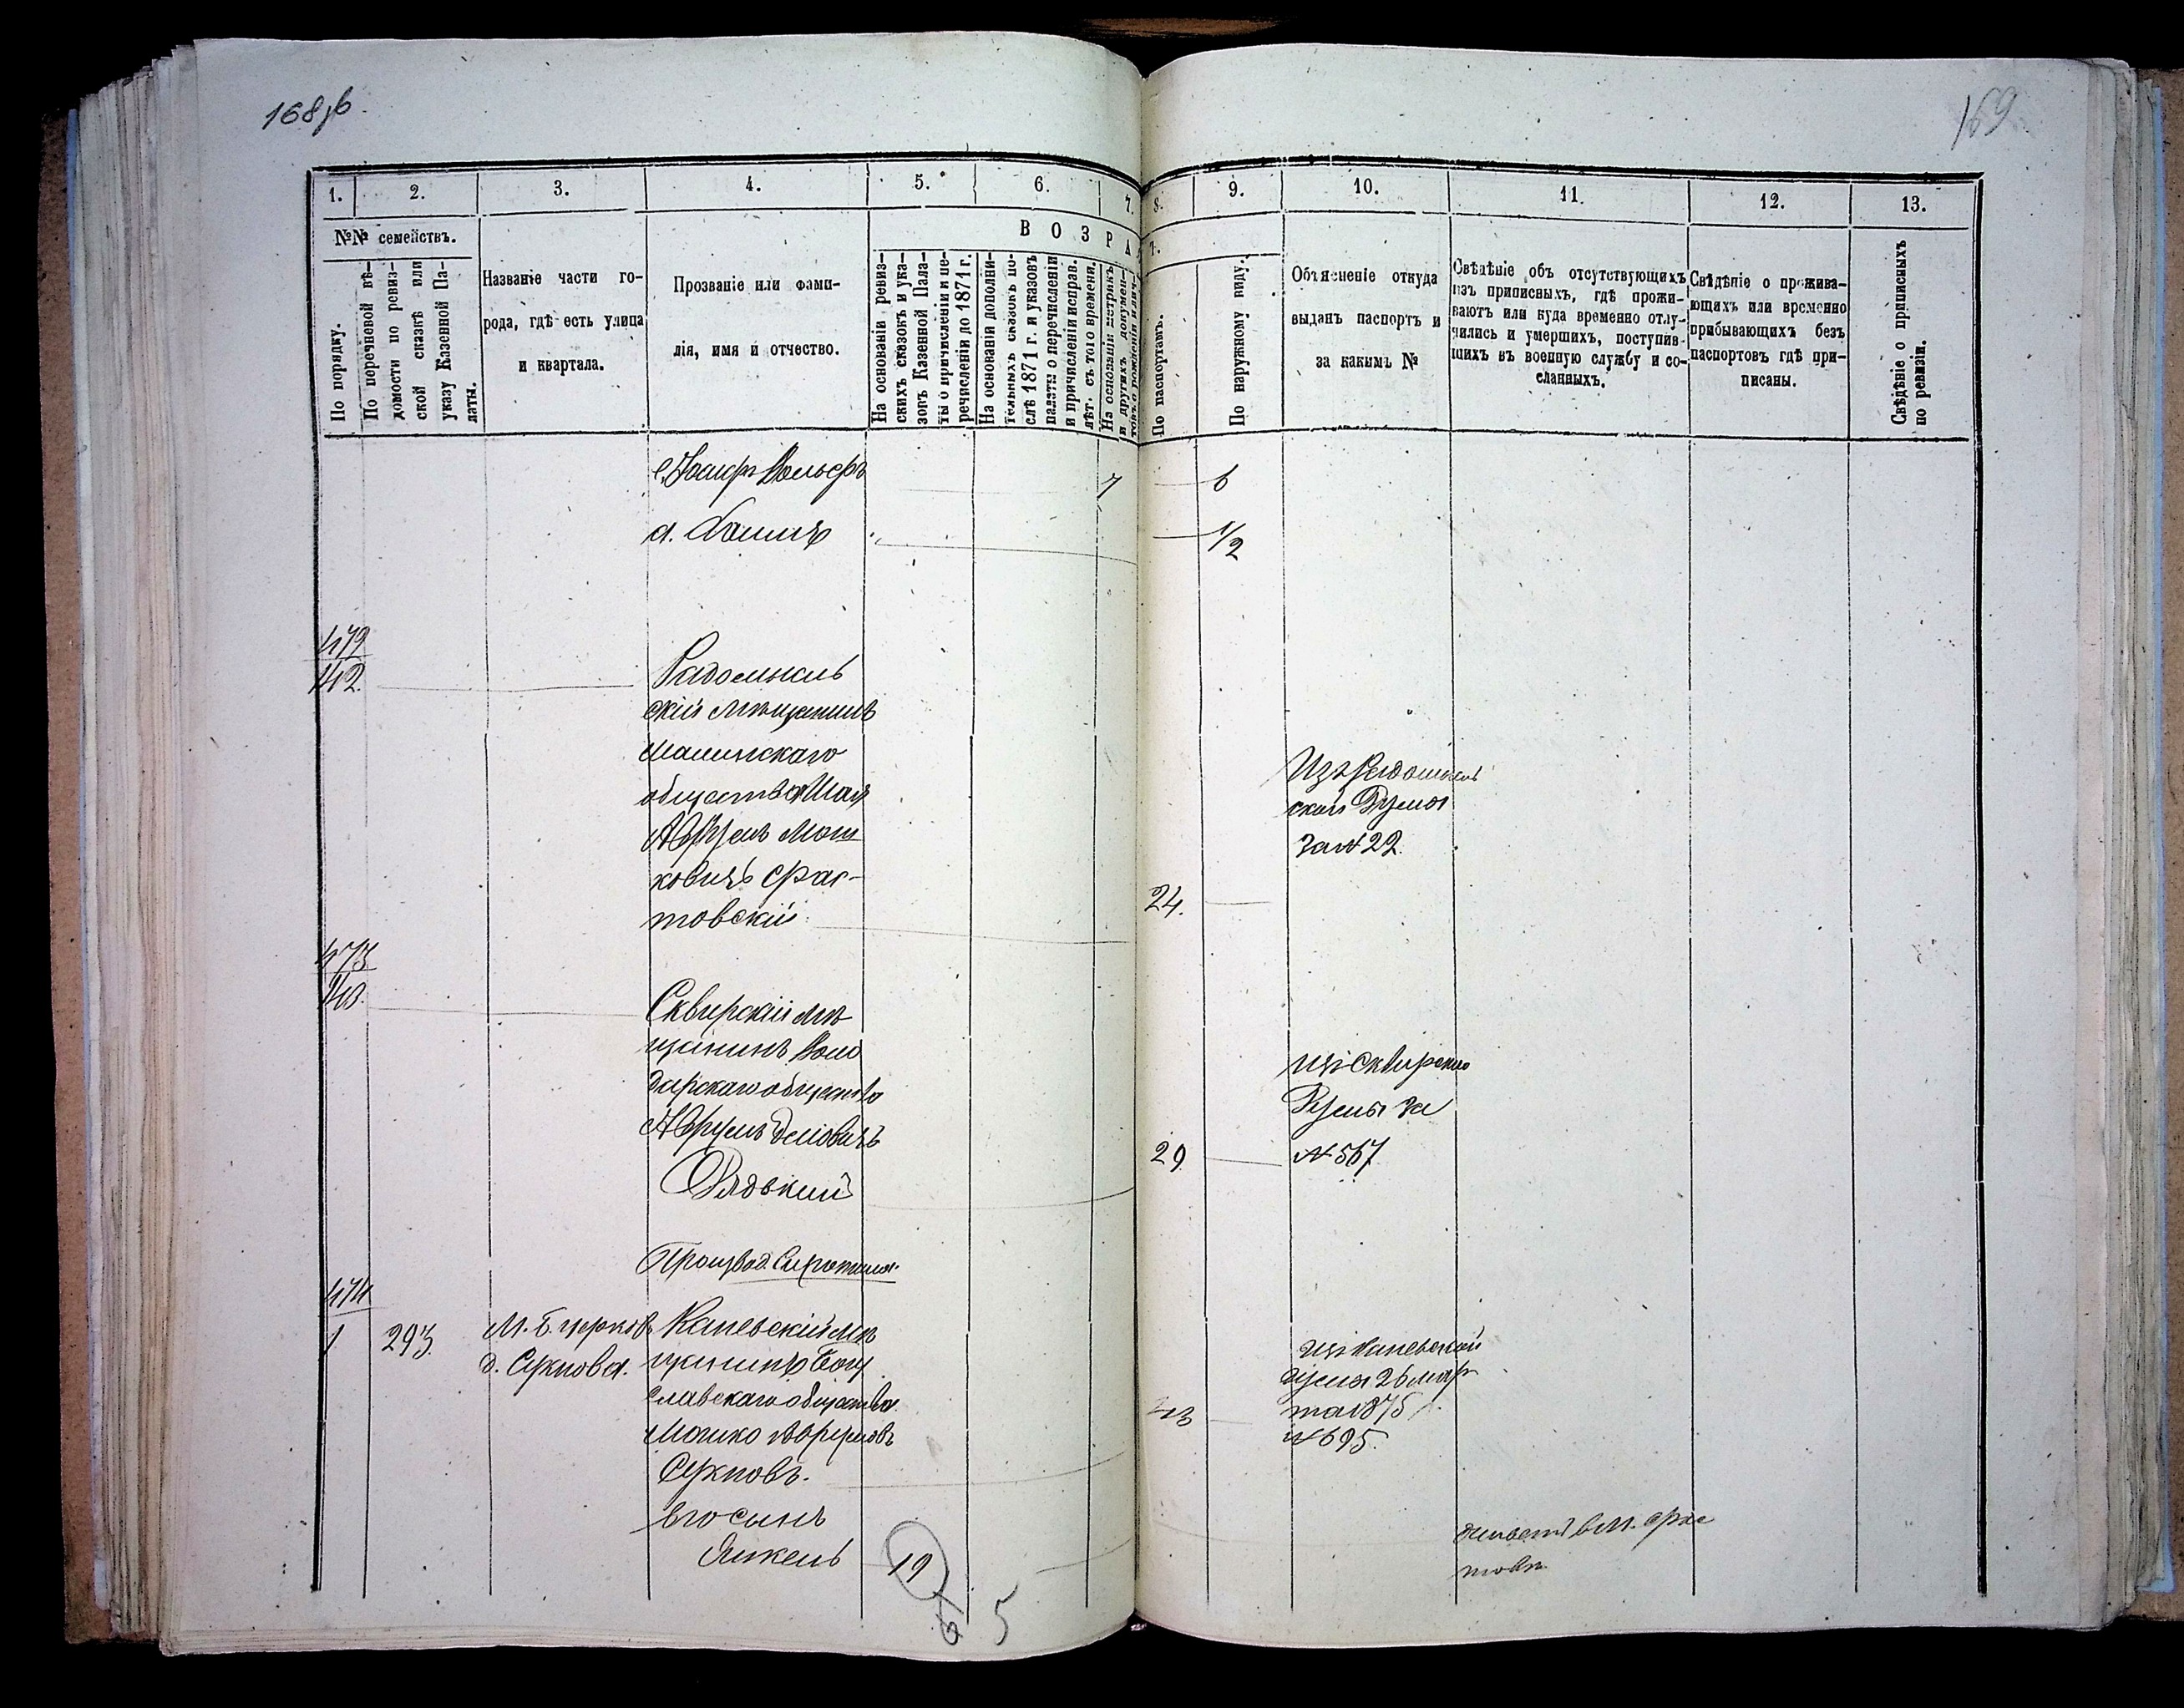 168об
169
1.
2.
3.
4.
5.
6.
7.
8.
9.
10.
11.
12.
13.
№№ семействъ.
По порядку.
По перечневой вѣ-
домости по ревиз-
ской сказкѣ или
указу Казенной Па-
латы.
Названіе части го-
рода, гдѣ есть улица
и квартала.
Прозваніе или фами-
лія, имя и отчество.
ВОЗРА
На основаніи ревиз-
скихъ сказокъ и ука-
зовъ Казенной Пала-
ты о причисленіи и пе-
речисленіи до 1871 г.
На основаніи дополни-
тельныхъ сказокъ по-
слѣ 1871 г. и указовъ
палаты о перечисленіи
и причисленіи исправ.
лѣт. съ того времени.
На основаніи метрикъ
и другихъ докумен-
По паспортамъ.
По наружному виду.
Объясненіе откуда
выданъ паспортъ и
за какимъ №
Свѣдѣніе объ отсутствующихъ
изъ приписныхъ, гдѣ прожи-
ваютъ или куда временно отлу-
чились и умершихъ, поступив-
шихъ въ военную службу и со-
сланныхъ.
Свѣдѣніе о прожива-
ющихъ или временно
прибывающихъ безъ
паспортовъ гдѣ при-
писаны.
Свѣдѣніе о приписныхъ
по ревизіи.
Вольфъ
7
6
а. Хаимъ
1/2
472
142.
Радомысль
скій мѣщанинъ
Малинскаго
общества
Аврумъ Мош
ковичъ Фас-
товскій
24.
Изъ Радомысль
ской Думы
за № 22.
473
143.
Сквирскій мѣ
щанинъ Воло
дарскаго общества
Аврумъ
29
изъ Сквирской
Думы за
№ 567
474
1
293.
М. Б. церковь
Каневскій мѣ
щанинъ Богу
славскаго общества
Мошко Аврумовъ
изъ Каневской
думы 26 мар
та 1875 г.
№ 695.
его сынъ
Янкель
19
живетъ въ м. Фас
товѣ
5